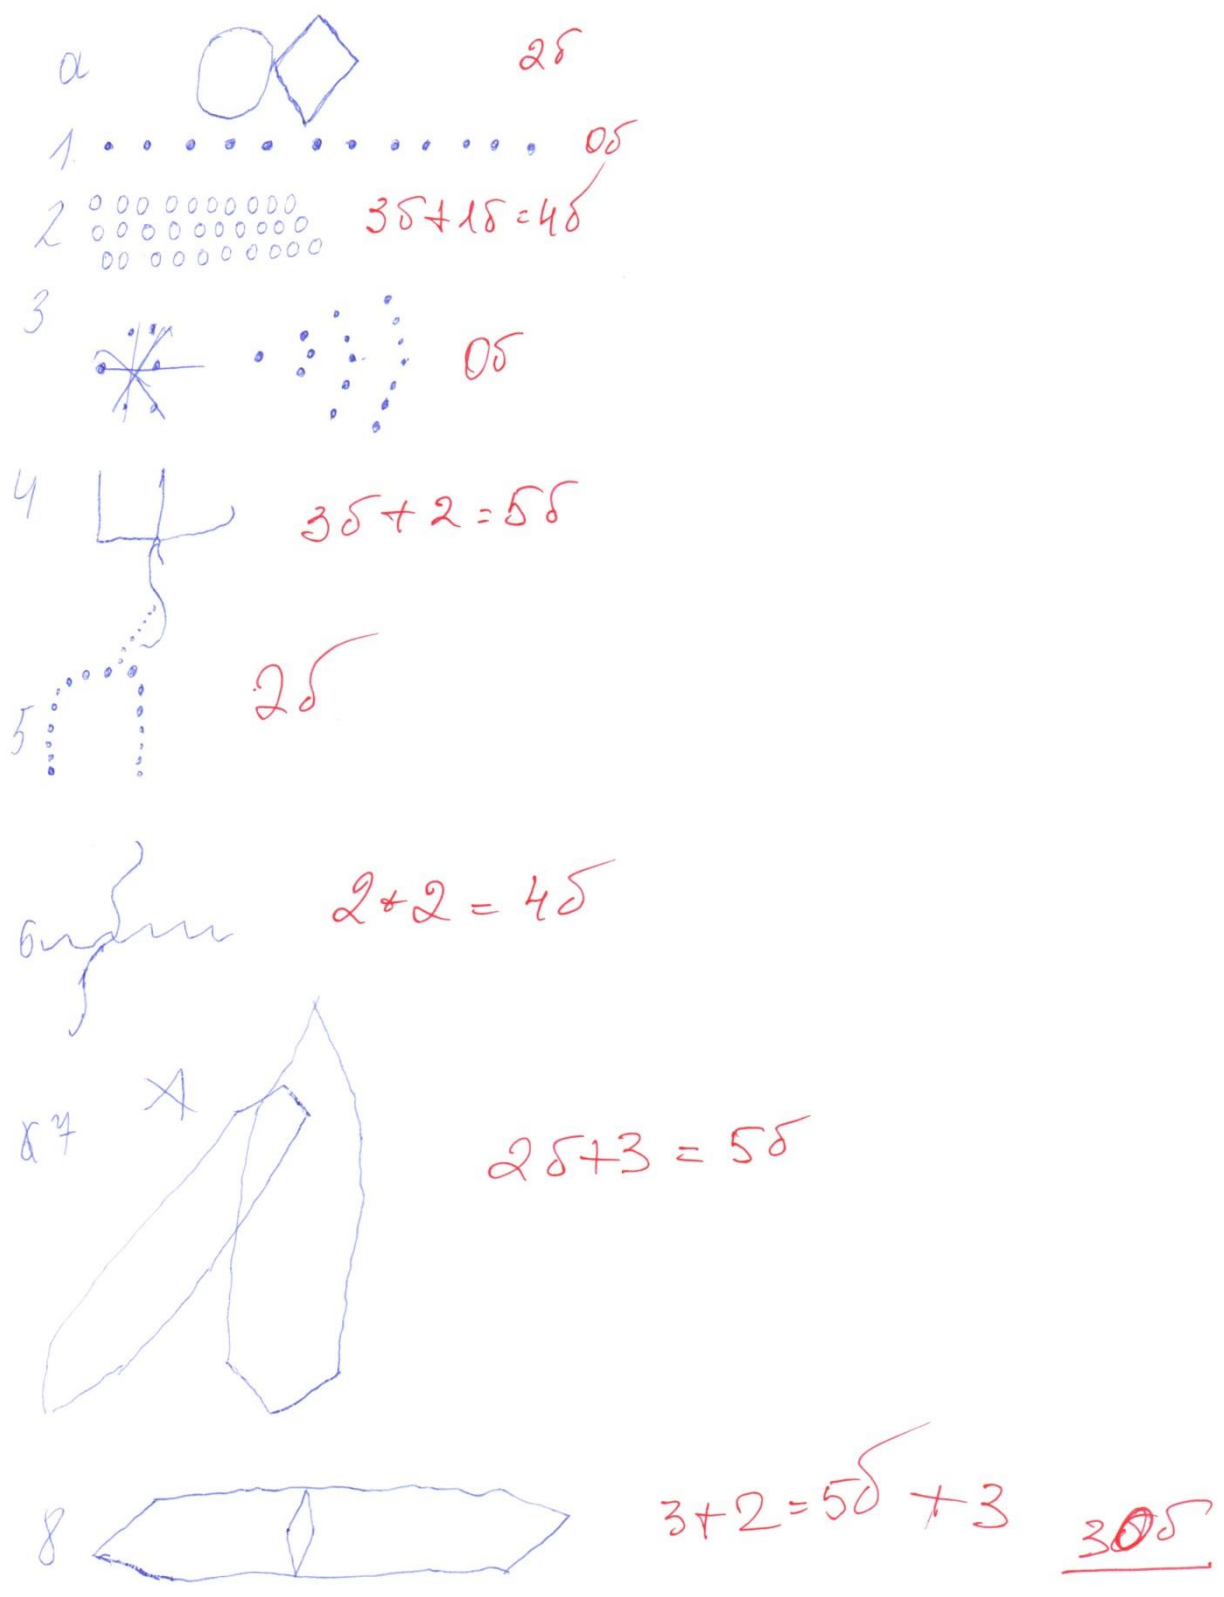 а 2б
1. 0б
2 3б+1б=4б
3 0б
4 3б+2=5б
5 2б
6 2+2=4б
7 2б+3=5б
8 3+2=5б+3 30б